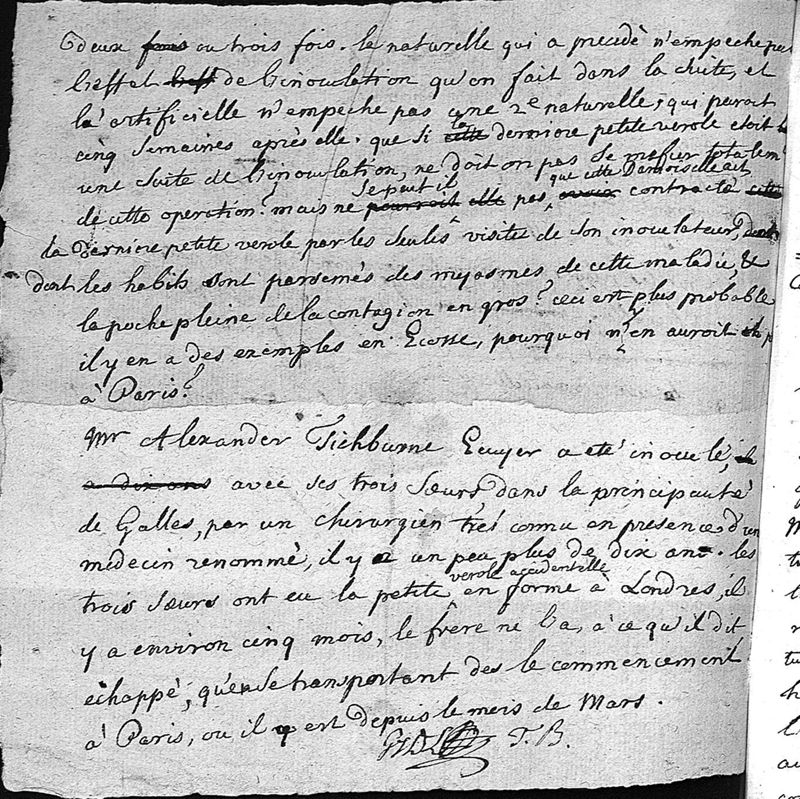 deux fois ou trois fois. la naturelle qui a precedè n'empeche pas
l'effet l'eff de l'inoculation qu'on fait dans la suite, et
l'artificielle n'empeche pas une 2e naturelle, qui paroit
cinq semaines après elle. que si cette la derniere petite verole etoit
une suite de l'inoculation, ne doit on pas se mefier totalem
de cette operation? mais ne pourroit elle se peut il pas, que cette Damoiselle ait avoir contracté cette
la derniere petite verole par les seules visites de son inoculateur, dont
dont les habits sont parsemés des myasmes de cette maladie, &
la poche pleine de la contagion en gros? ceci est plus probable
il y en a des exemples en Ecosse, pourquoi n'y en auroit il p
à Paris?
Mr Alexander Tichburne Ecuyer a eté inoculé, il
a dix ans avec ses trois sœurs dans la principauté
de Galles, par un chirurgien très connu en presence d'un
medecin renommè, il y a un peu plus de dix ans. les
trois sœurs ont eu la petite verole accidentelle en forme à Londres, il
y a environ cinq mois, le frère ne l'a, à ce qu'il dit
echappé, qu'en se transportant des le commencement
à Paris, ou il y est depuis le mois de Mars.
T. B.